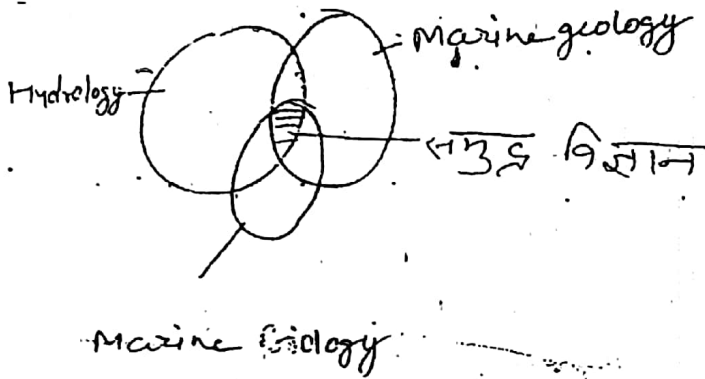 Marine geology
Hydrology
समुद्र विज्ञान
Marine Biology